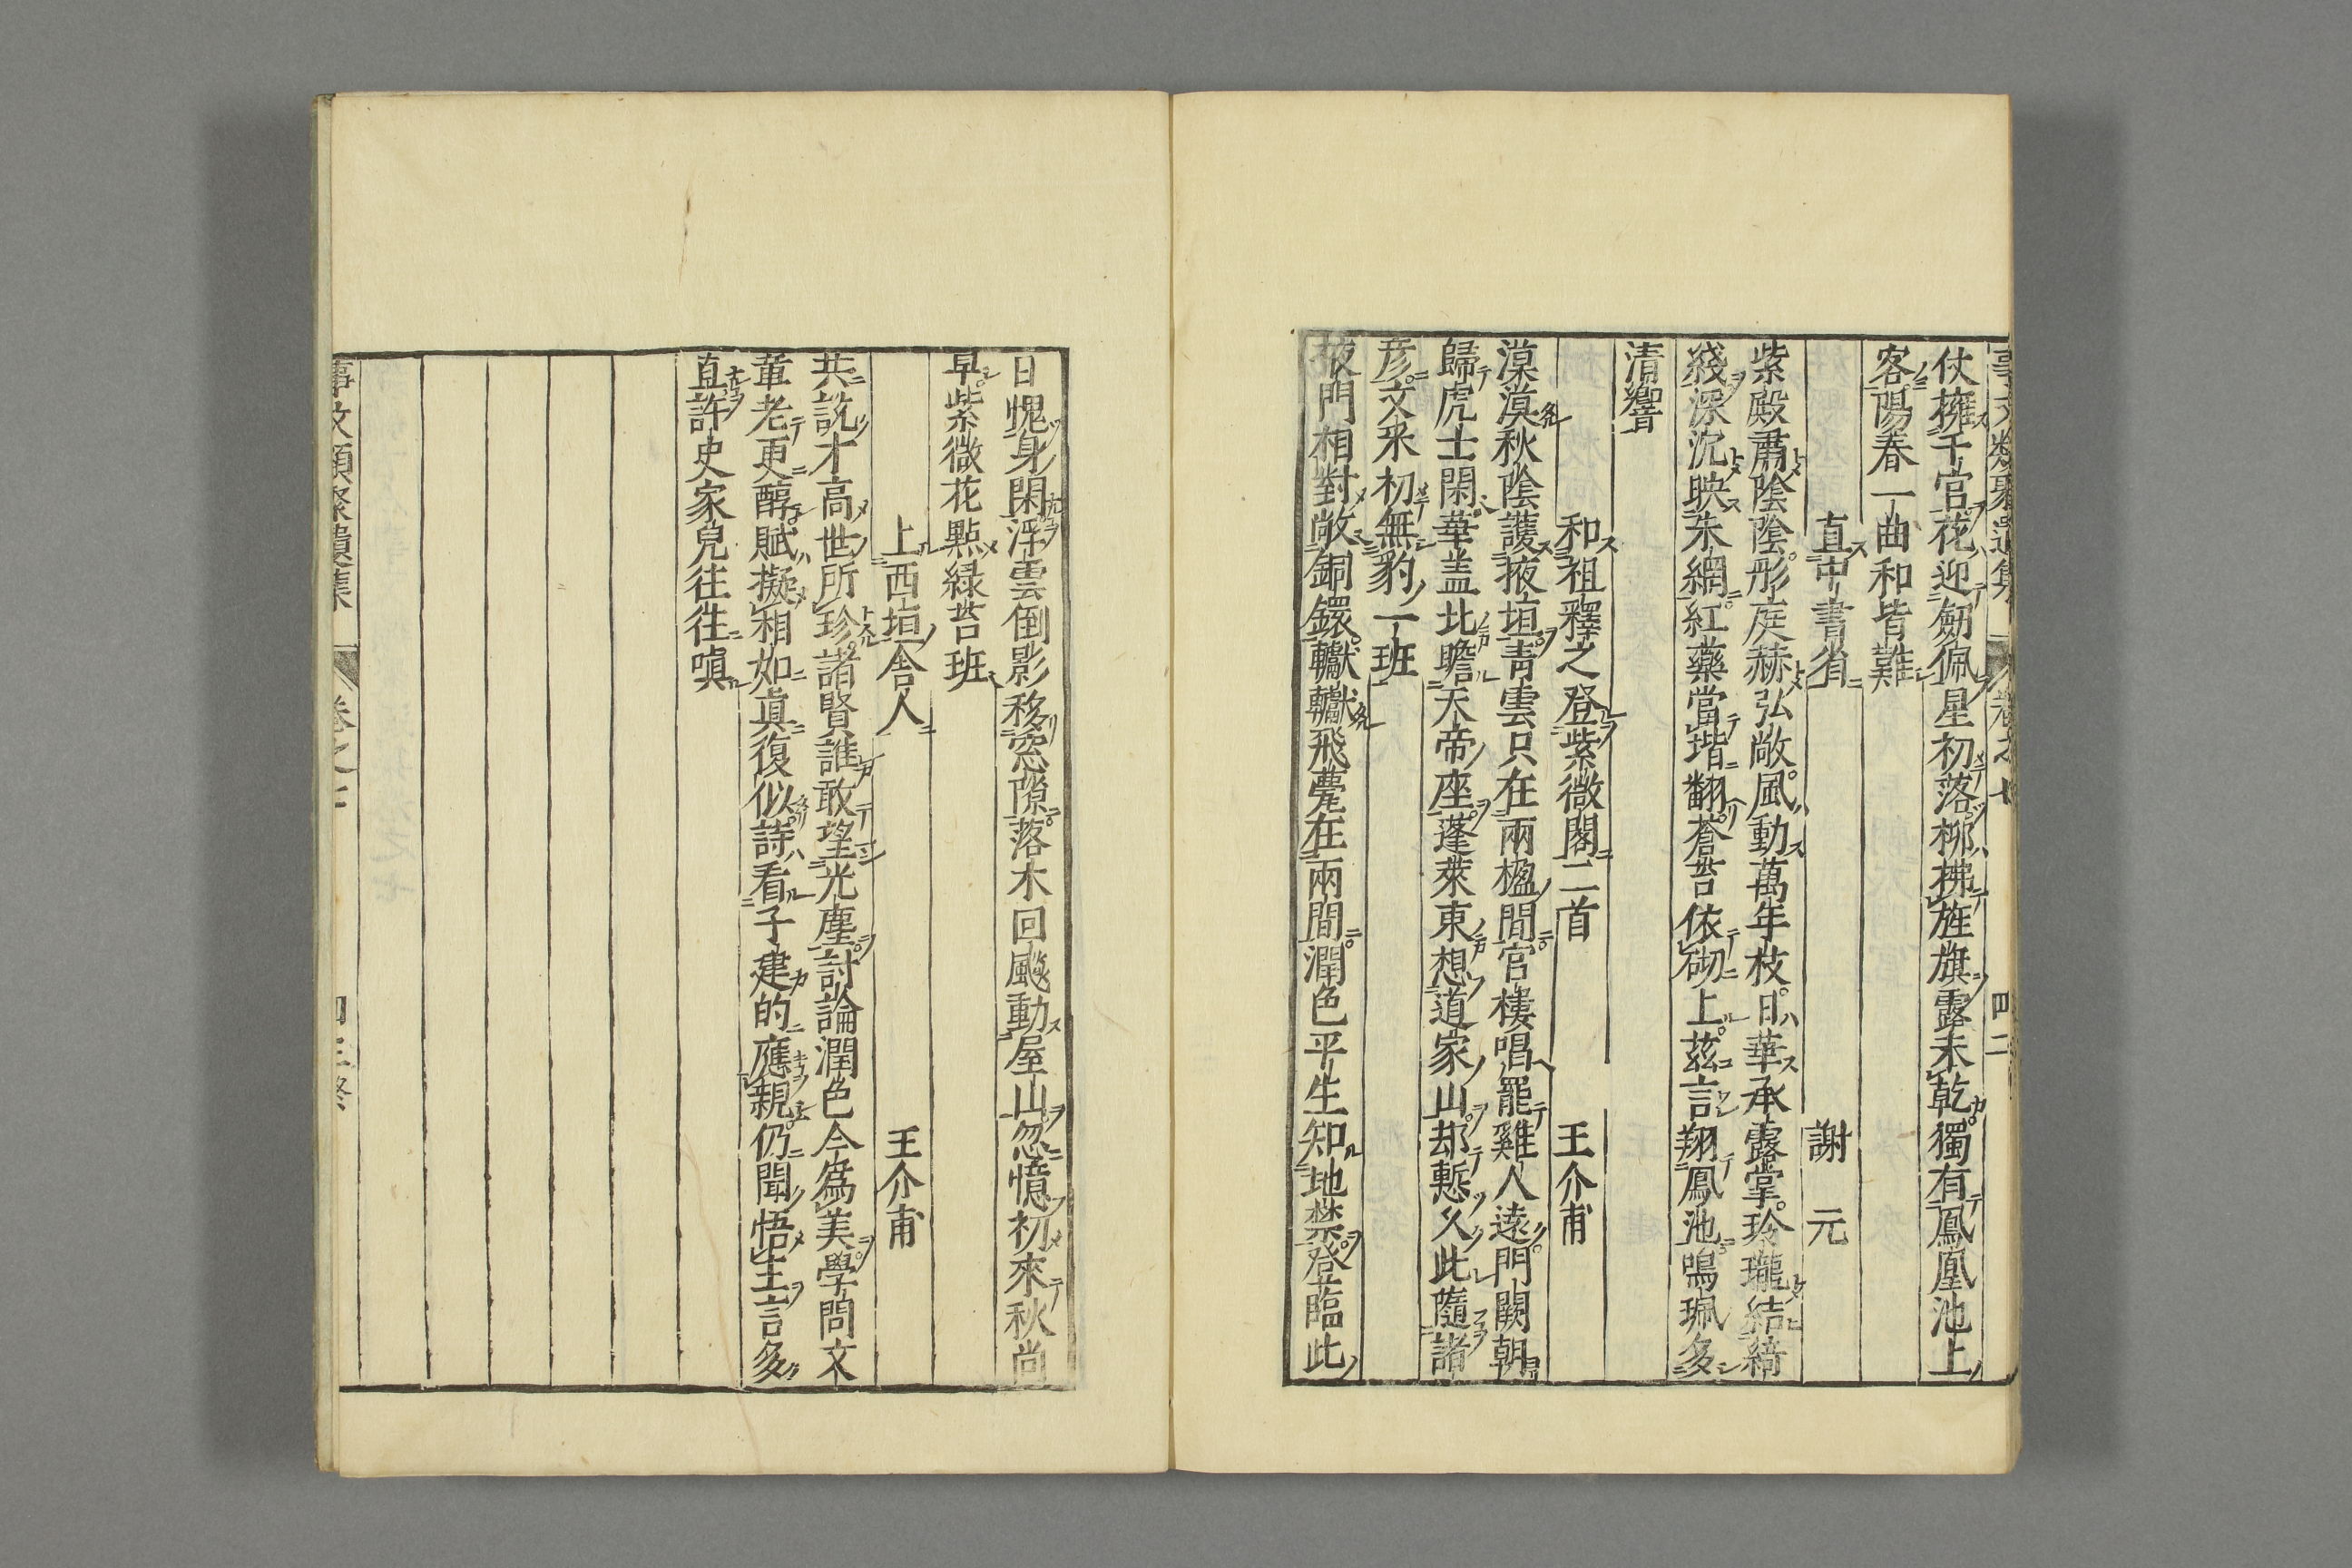 事文類聚遺集 卷之七 四二
仗擁千官花迎劒佩星初落柳拂旌旗露未乾獨有鳳凰池上
客陽春一曲和皆難
直中書省 謝元
紫殿肅陰陰彤庭赫弘敞風動萬年枝日華承露掌玲瓏結綺
錢深沉映朱網紅藥當堦翻蒼苔依砌上茲言翔鳳池鳴珮多
清響
和祖釋之登紫微閣二首 王介甫
漠漠秋陰護掖垣青雲只在兩楹間宮樓唱罷雞人遠門闕朝
歸虎士閑華盖北瞻天帝座蓬萊東想道家山却慙久此隨諸
彦文采初無豹一班
掖門相對敞銅鐶轥轥飛甍在兩間潤色平生知地禁登臨此
日愧身閑浮雲倒影移窓隙落木回飈動屋山忽憶初來秋尚
早紫微花點緑苔班
上西垣舎人 王介甫
共説才高世所珍諸賢誰敢望光塵討論潤色今為美學問文
章老更醇賦擬相如真復似詩看子建的應親仍聞悟主言多
直許史家兒往往嗔
事文類聚遺集 卷之七 四三終